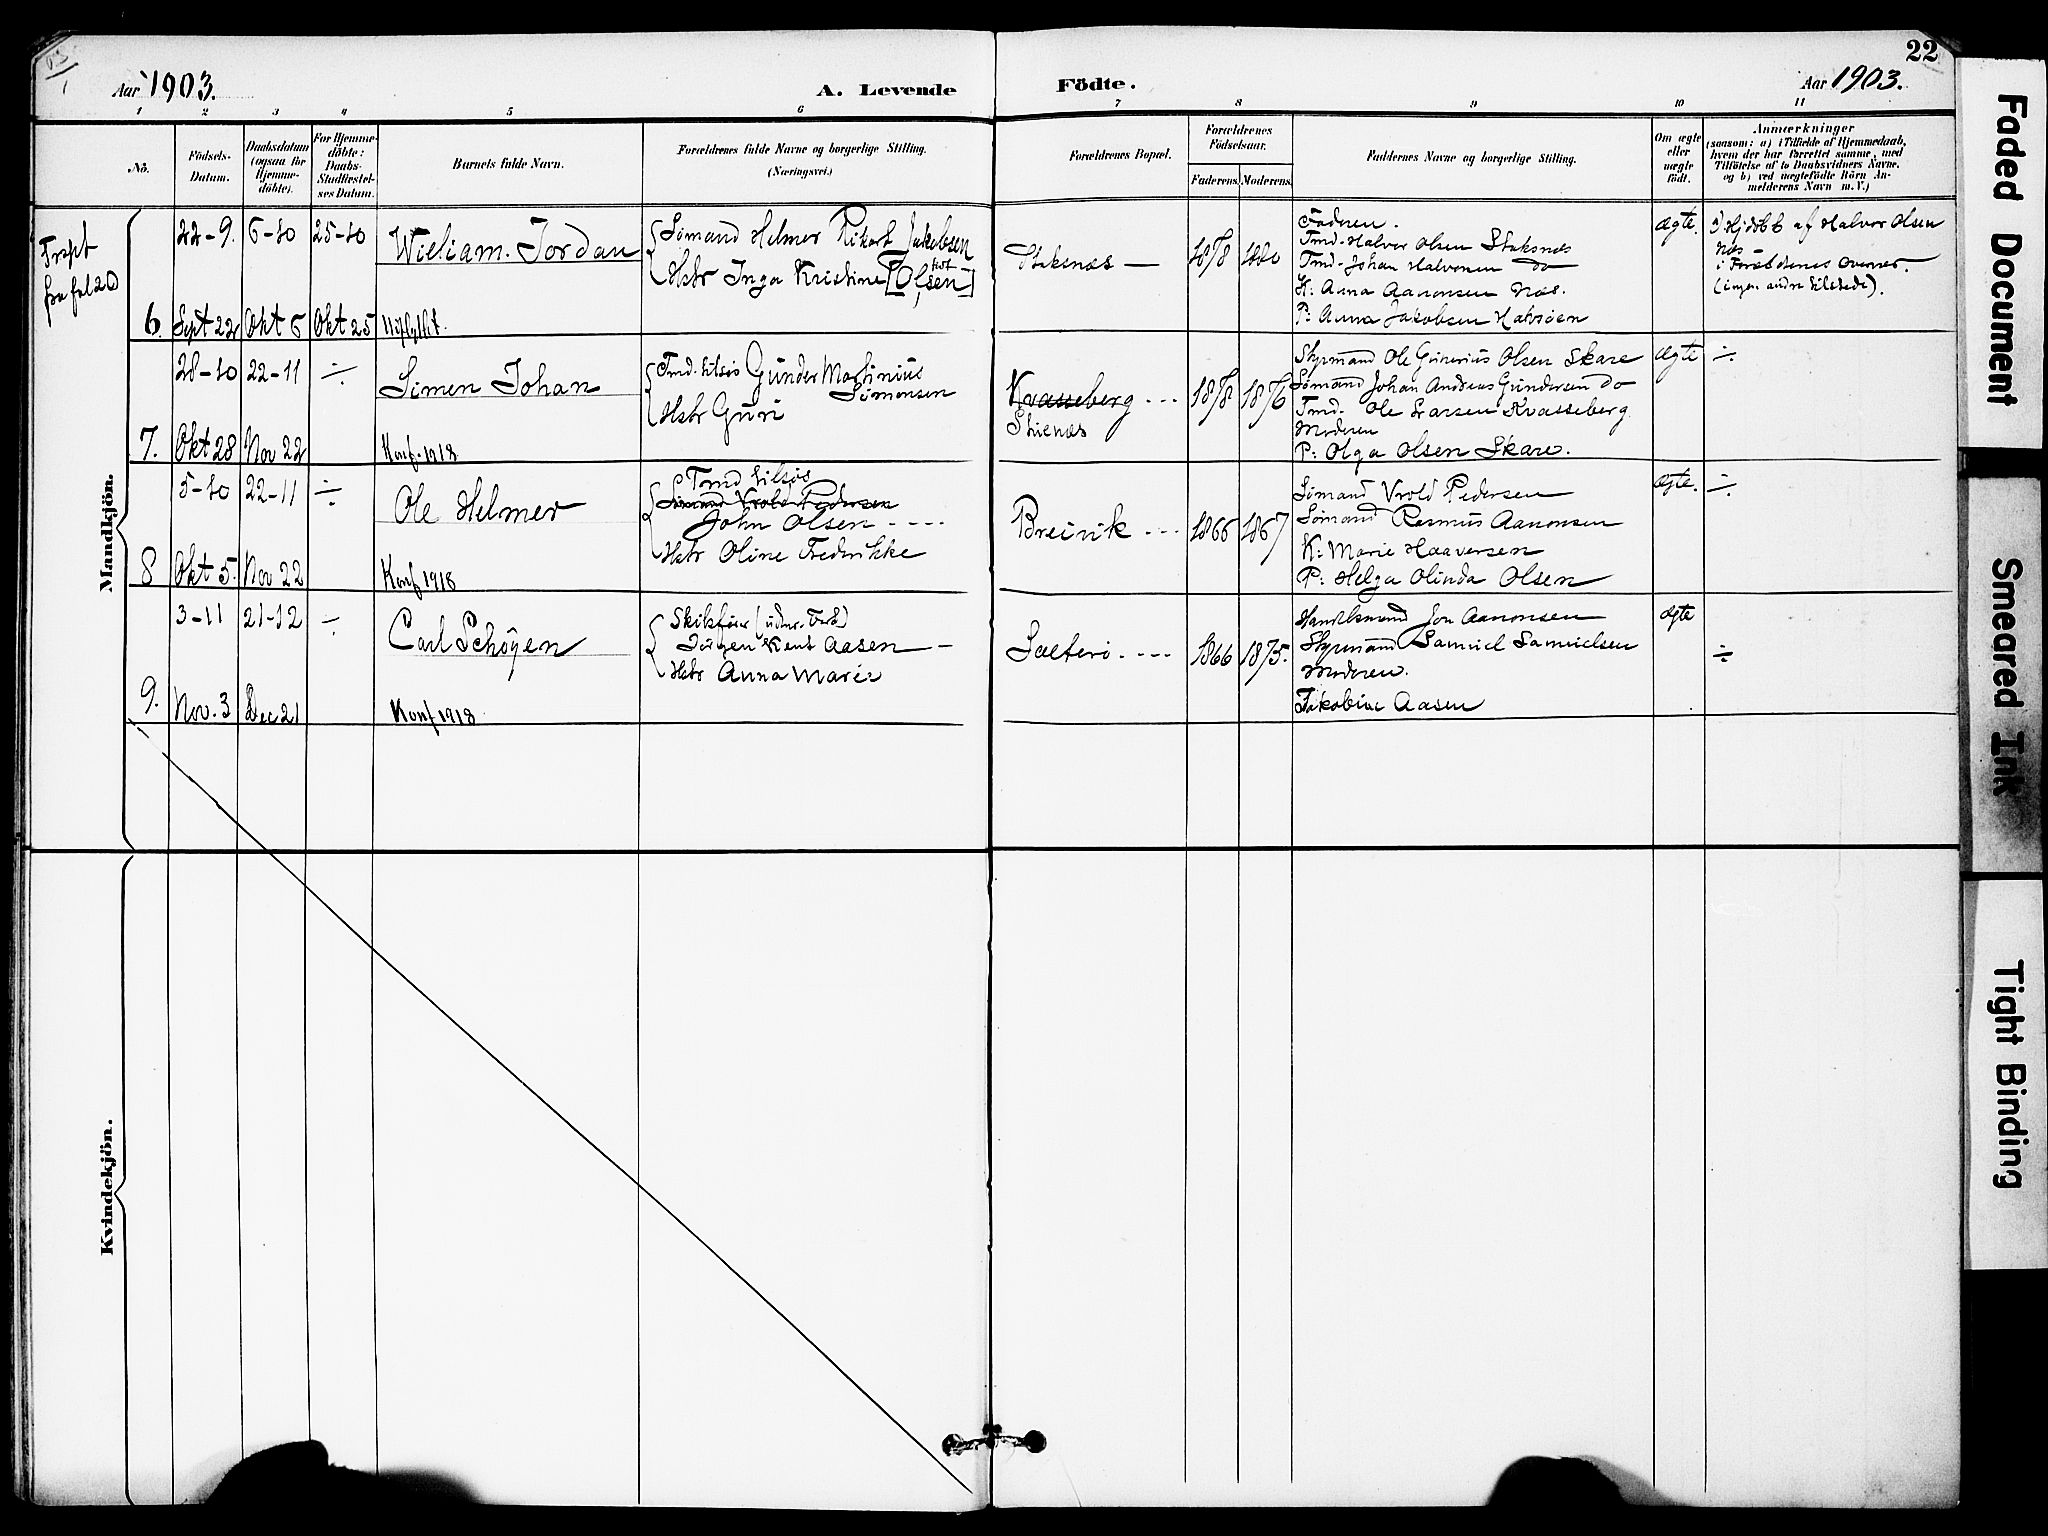 22
Aar 1903. A. Levende Födte. Aar 1903.
1 2 3 4 5 6 7 8 9 10 11
No.
Födsels-
Datum.
Daabsdatum
(ogsaa for
Hjemme-
döbte).
For Hjemme-
döbte:
Daabs-
Stadfæstel-
ses Datum.
Barnets fulde Navn.
Forældrenes fulde Navne og borgerlige Stilling.
(Næringsvei.)
Forældrenes Bopæl.
Forældrenes
Födselsaar.
Faderens. Moderens.
Faddernes Navne og borgerlige Stilling.
Om ægte
eller
uægte
födt.
Anmærkninger
(saasom: a) i Tilfælde af Hjemmedaab,
hvem der har forrettet samme, med
Tilföielse af to Daabsvidners Navne.
og b) ved uægtefödte Börn An-
melderens Navn m. V.)
fra fol 20
Mandkjön.
6. 22-9. 6-10 25-10
Sept 22 Okt 6 Okt 25
Wieliam. Jordan
Sömand Helmer Rikart Jakobsen
Hstr Inga Kristine [Olsen]
Staksnæs —
1878 1880
Faderen.
Tmd. Halvor Olsen Staksnæs
Tmd. Johan Halvorsen do
K: Anna Aanonsen Næs.
P: Anna Jakobsen
ægte.
Hjdöbt af Halvor Olsen
Næs
i Forældrenes Overvær.
(ingen andre tilstede).
7. 28-10 22-11 ÷
Okt 28 Nov 22
Simen Johan
Konf. 1918
Tmd. tilsös Gunder Martinius
Simonsen
Hstr Guri
Kvasseberg
Skienæs
1878 1876
Styrmand Ole Gunerius Olsen Skare
Sömand Johan Andreas Gundersen do
Tmd. Ole Larsen Kvasseberg.
Moderen
P: Olga Olsen Skare.
ægte ÷
8 5-10 22-11 ÷
Okt 5. Nov 22
Ole Helmer
Konf 1918
Tmd tilsös
Sömand Vrold Pedersen
John Olsen
Hstr Oline Frederikke
Breivik
1866 1867
Sömand Vrold Pedersen
Sömand Rasmus Aanonsen
K: Marie Haaversen
P: Helga Olinda Olsen
ægte. ÷
9. 3-11 21-12 ÷
Nov. 3 Dec 21
Carl Schöyen
Konf 1918
Skibsförer (udenr. Fart)
Jörgen Kent Aasen —
Hstr Anna Marie
Sæterö
1866 1875.
Handlsmand Jon Aanonsen
Styrmand Samuel Samuelsen
Moderen.
Jakobine Aasen
ægte ÷
Kvindekjön.
Faded Document
Smeared Ink
Tight Binding